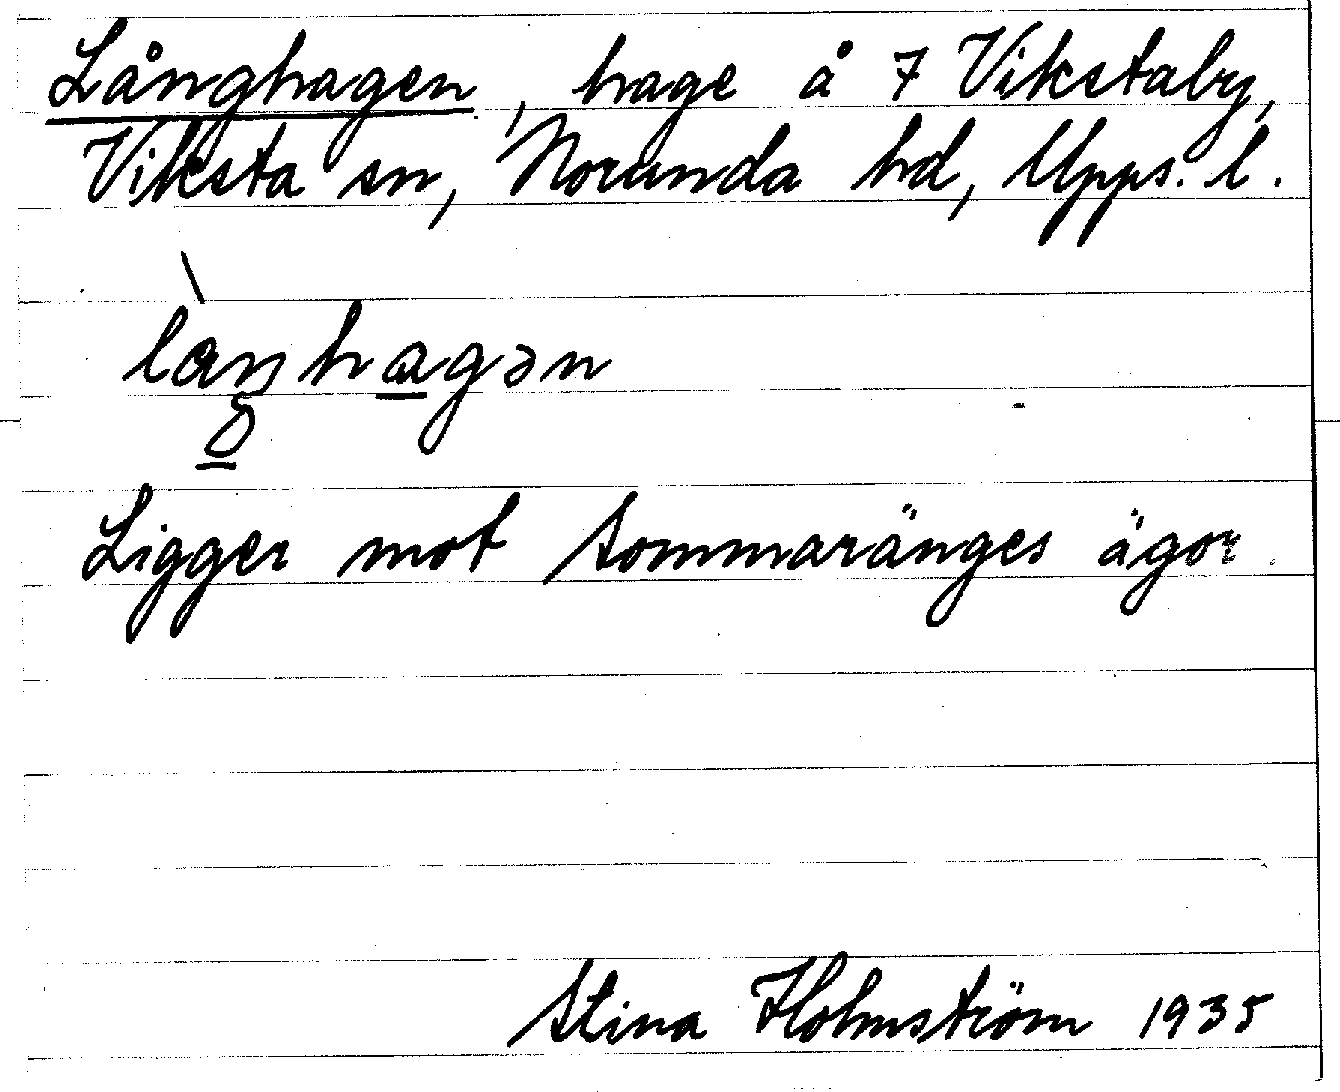 Långhagen, hage å 7 Vikstaby,
Viksta sn, Norunda hd, Upps. l.
làŋhagən
Ligger mot Sommaränges ägor.
Stina Holmström 1935